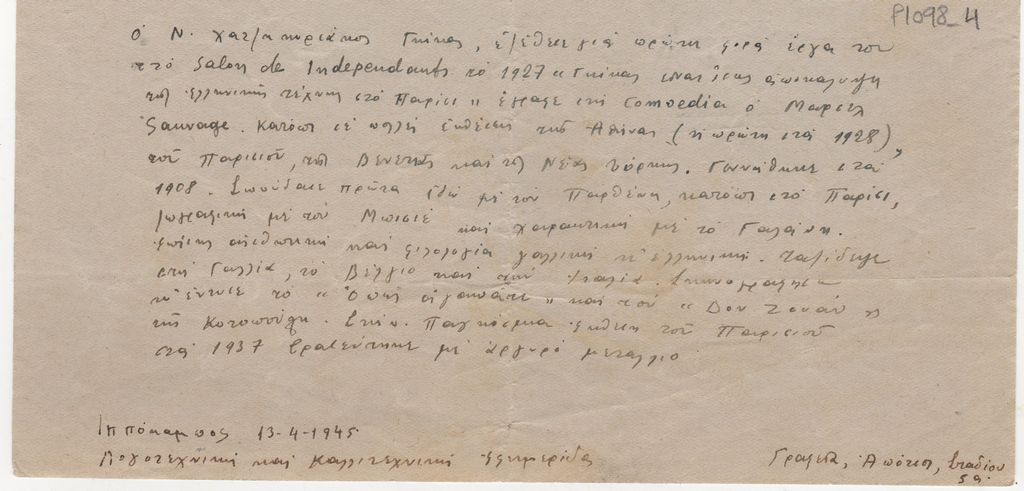 P1098_4
Ὁ Ν. Χατζηκυριάκος Γκίκας, ἐξέθεσε γιά πρώτη φορά ἔργα του
στό Salon de Independants τό 1927 « Γκίκας εἶναι ἴσως ἀποκάλυψη
τῆς ἑλληνικῆς τέχνης στό Παρίσι » ἔγραψε στή Comoedia ὁ Μαρσέλ
Sauvage. Κατόπι σέ πολλές ἐκθέσεις τῆς Ἀθήνας (ἡ πρώτη στά 1928),
τοῦ Παρισιοῦ, τῆς Βενετιᾶς καί τῆς Νέας Ὑόρκης. Γεννήθηκε στά
1908. Σπούδασε πρῶτα ἐδῶ μέ τόν Παρθένη, κατόπι στό Παρίσι,
ζωγραφική μέ τόν Μπισιέ καί χαρακτική μέ τό Γαλάνη.
ἐπίσης αἰσθητική καί φιλολογία γαλλική κι' ἑλληνική. Ταξίδεψε
στή Γαλλία, τό Βέλγιο καί τήν Ἰταλία. Σκηνογράφησε
κι' ἔντυσε τό « Ὅπως ἀγαπᾶτε » καί τόν « Δον Ζουάν »
τῆς Κοτοπούλη. Στήν Παγκόσμια ἔκθεση τοῦ Παρισιοῦ
στά 1937 βραβεύτηκε μέ ἀργυρό μετάλλιο
Ἱππόκαμπος 13-4-1945
Λογοτεχνική καί Καλλιτεχνική Ἐφημερίδα
Γραφεῖα, Σταδίου
59.